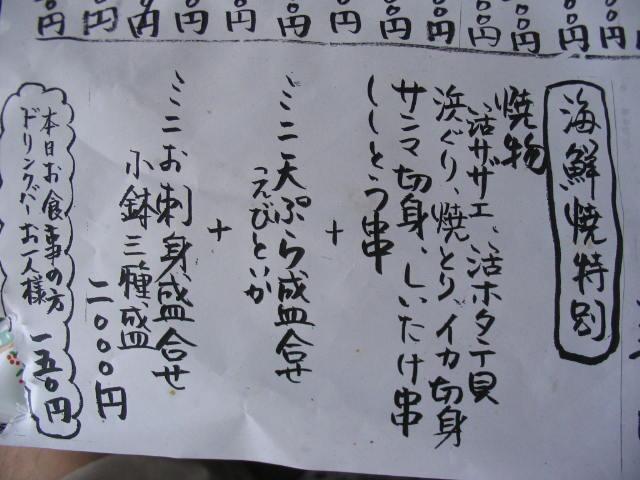 海鮮焼特別
焼物
活サザエ、活ホタテ貝
浜ぐり、焼とり、イカ切身
サンマ切身、しいたけ串
ししとう串
+
ミニ天ぷら盛合せ
えびといか
+
ミニお刺身盛合せ
小鉢三種盛
二〇〇〇円
本日お食事の方
ドリンクバーお一人様
一五〇円